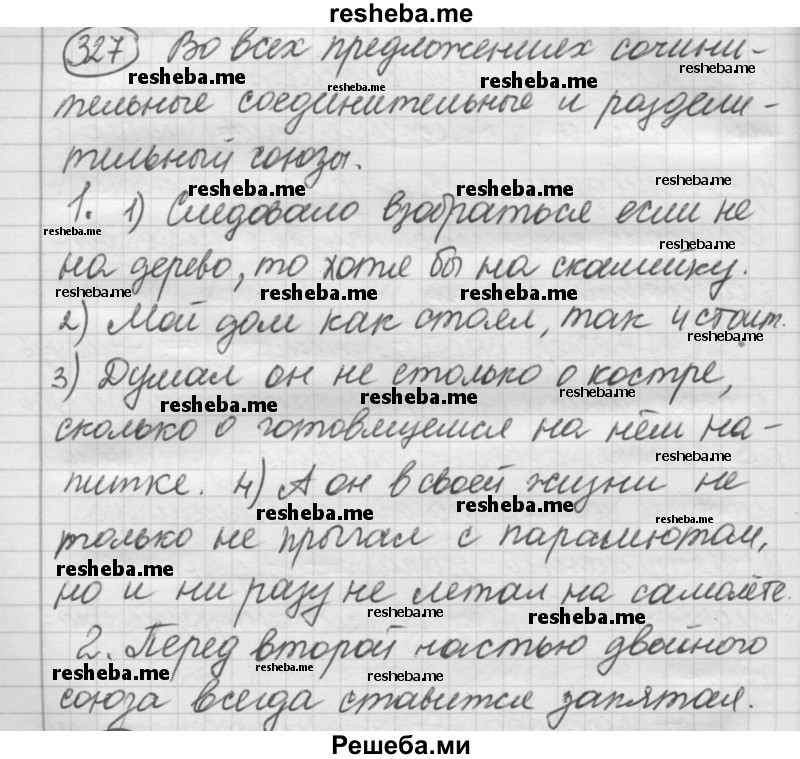 resheba.me
327 Во всех предложениях сочини-
resheba.me resheba.me resheba.me resheba.me
тельные соединительные и раздели-
тельный союзы.
resheba.me resheba.me resheba.me
1. 1) Следовало взобраться если не
resheba.me resheba.me
на дерево, то хотя бы на скамейку.
resheba.me resheba.me resheba.me
2) Мой дом как стоял, так и стоит.
resheba.me
3) Думал он не столько о костре,
resheba.me resheba.me resheba.me
сколько о готовящемся на нём на-
resheba.me resheba.me
питке. 4) А он в своей жизни не
resheba.me resheba.me resheba.me
только не прыгал с парашютом,
resheba.me
но и ни разу не летал на самолёте.
resheba.me resheba.me
2. Перед второй частью двойного
resheba.me resheba.me resheba.me
союза всегда ставится запятая.
Решеба.ми